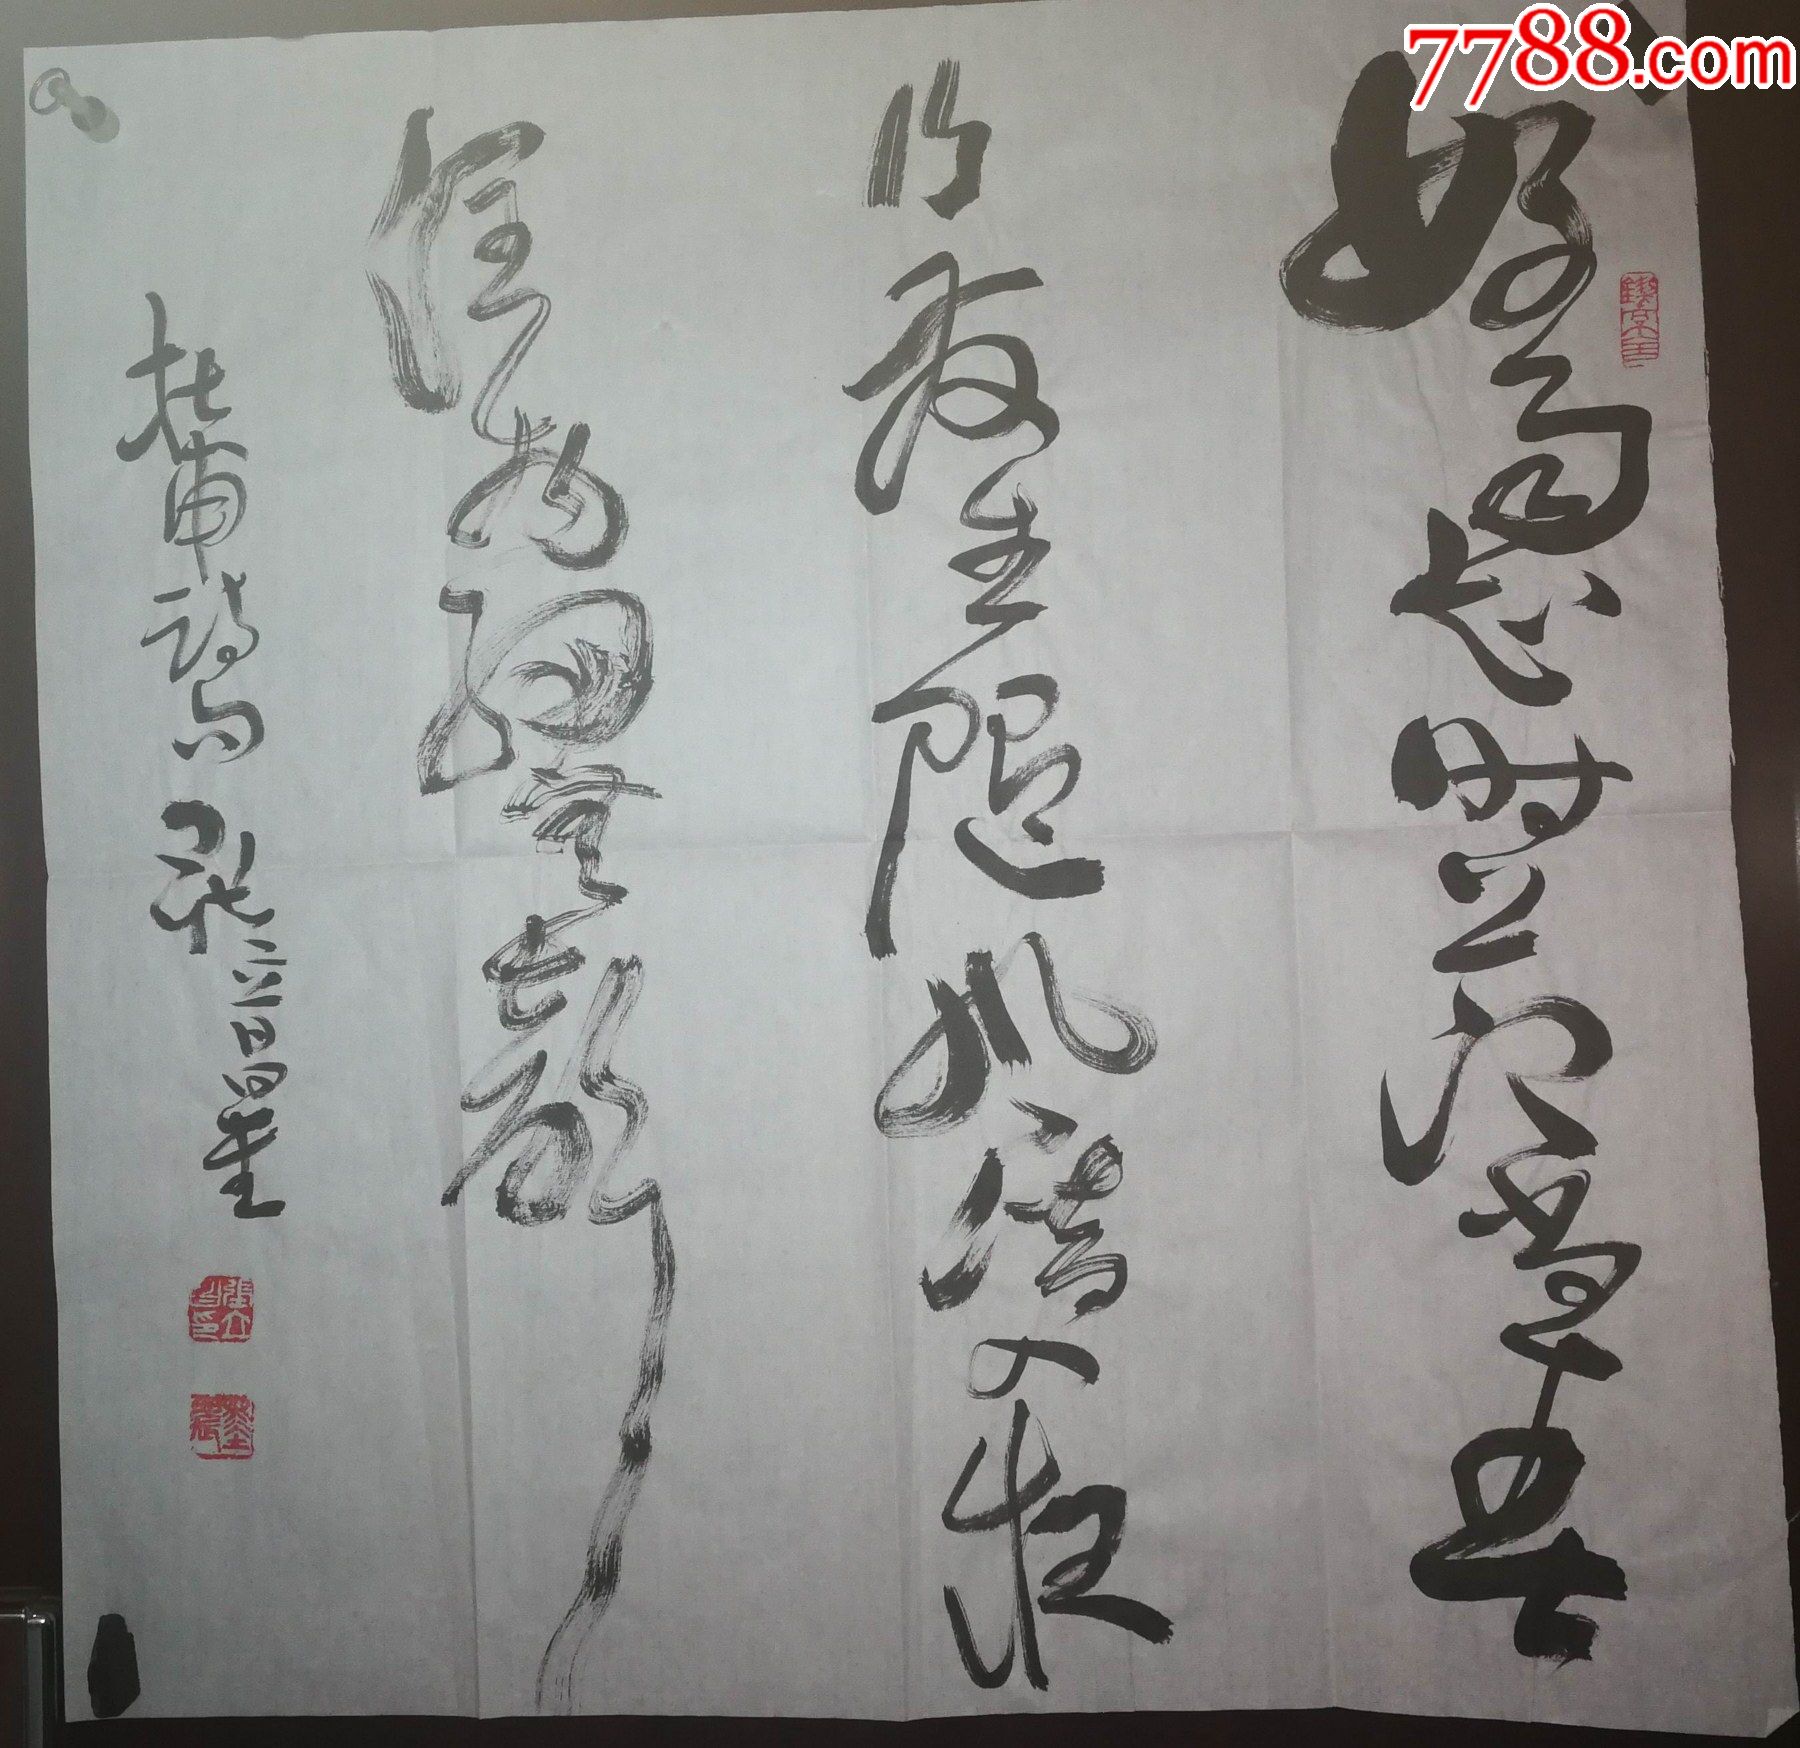 好雨知时节当春
乃发生随风潜入夜
润物细无声
杜甫诗句 张立昌书
7788.com